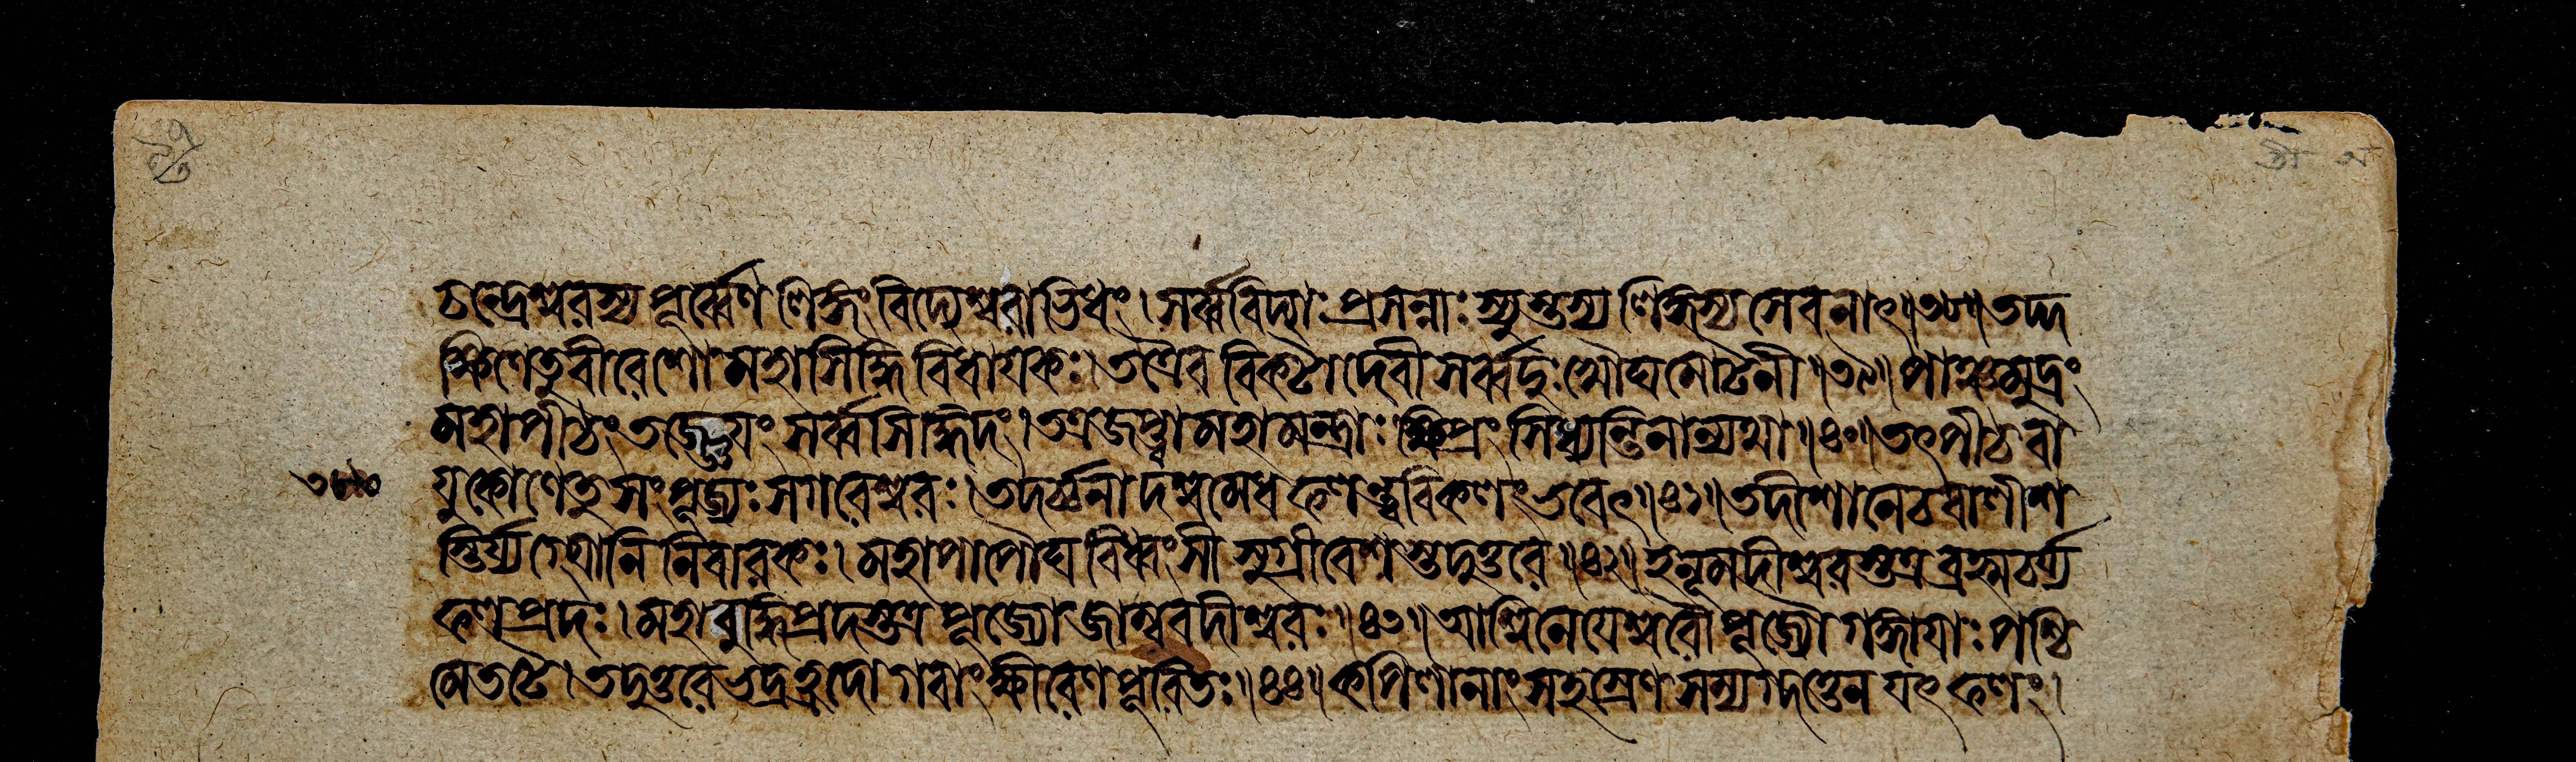 চন্দ্রেশ্বরস্য পূর্ব্বেণ লিঙ্গং বিদ্যেশ্বরাভিধং । সর্ব্ববিদ্যাঃ প্রসন্নাঃ স্যুস্তস্য লিঙ্গস্য সেবনাৎ॥৩৮॥ তদ্দ
ক্ষিণেতুবীরেশো মহাসিদ্ধিবিধায়কঃ। তত্রৈব বিকটাদেবী সর্ব্বদুঃখৌঘমোচনী॥৩৯॥ পাঞ্চমুদ্রং
মহাপীঠং তজ্জ্ঞেয়ং সর্ব্বসিদ্ধিদং। তত্রজপ্ত্বামহামন্ত্রাঃ ক্ষিপ্রং সিধ্যন্তিনান্যথা॥৪০॥ তৎপীঠবা
যুকোণেতু সংপূজ্যঃ সগরেশ্বরঃ। তদর্চ্চনাদশ্বমেধফলন্ত্ববিকলং ভবেৎ॥৪১॥ তদীশানেচবালীশ
স্তির্য্যগ্যোনিনিবারকঃ। মহাপাপৌঘবিধ্বংসী সুগ্রীবেশস্তদুত্তরে॥৪২॥ হনূমদীশ্বরস্তত্র ব্রহ্মচর্য্য
ফলপ্রদঃ। মহাবুদ্ধিপ্রদস্তত্র পূজ্যোজাম্ববদীশ্বরঃ॥৪৩॥ আশ্বিনেয়েশ্বরৌপূজ্যৌ গঙ্গায়াঃ পশ্চি
মেতটে। তদুত্তরেভদ্রহ্রদো গবাংক্ষীরেণপূরিতঃ॥৪৪॥ কপিলানাংসহস্রেণ সম্যগ্দত্তেন যৎফলং।